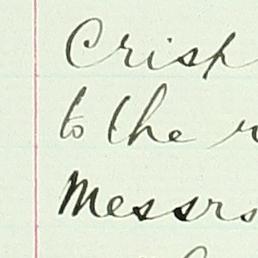 Crisp
to the
Messrs